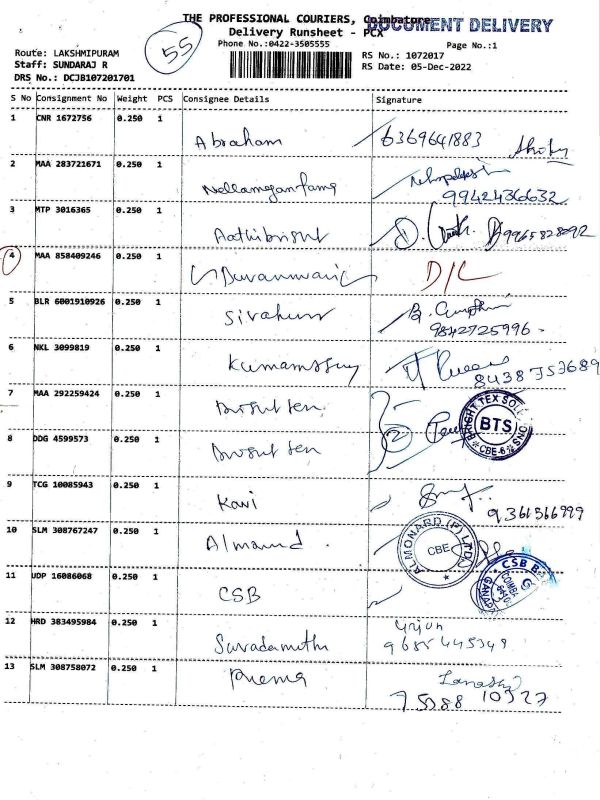 THE PROFESSIONAL COURIERS, Coimbatore
DOCUMENT DELIVERY
Delivery Runsheet - PCX
55
Phone No.:0422-3505555
Page No.:1
Route: LAKSHMIPURAM
RS No.: 1072017
Staff: SUNDARAJ R
RS Date: 05-Dec-2022
DRS No.: DCJB107201701
S No Consignment No Weight PCS Consignee Details Signature
1 CNR 1672756 0.250 1 Abraham 6369641883
2 MAA 283721671 0.250 1 99424366632
3 MTP 3016365 0.250 1 Aathibright 9965828292
4 MAA 858409246 0.250 1 D/L
5 BLR 6001910926 0.250 1 Sivakumar 9842725996
6 NKL 3099819 0.250 1 8438753689
7 MAA 292259424 0.250 1 BRIGHT TEX SOLUTIONS BTS CBE-6
8 DDG 4599573 0.250 1 2
9 TCG 10085943 0.250 1 Kavi 9361566999
10 SLM 308767247 0.250 1 Almonard ALMONARD (P) LTD. CBE
11 UDP 16086068 0.250 1 CSB CSB
12 HRD 383495984 0.250 1 9685445349
13 SLM 308758072 0.250 1 Prema 75388 10327